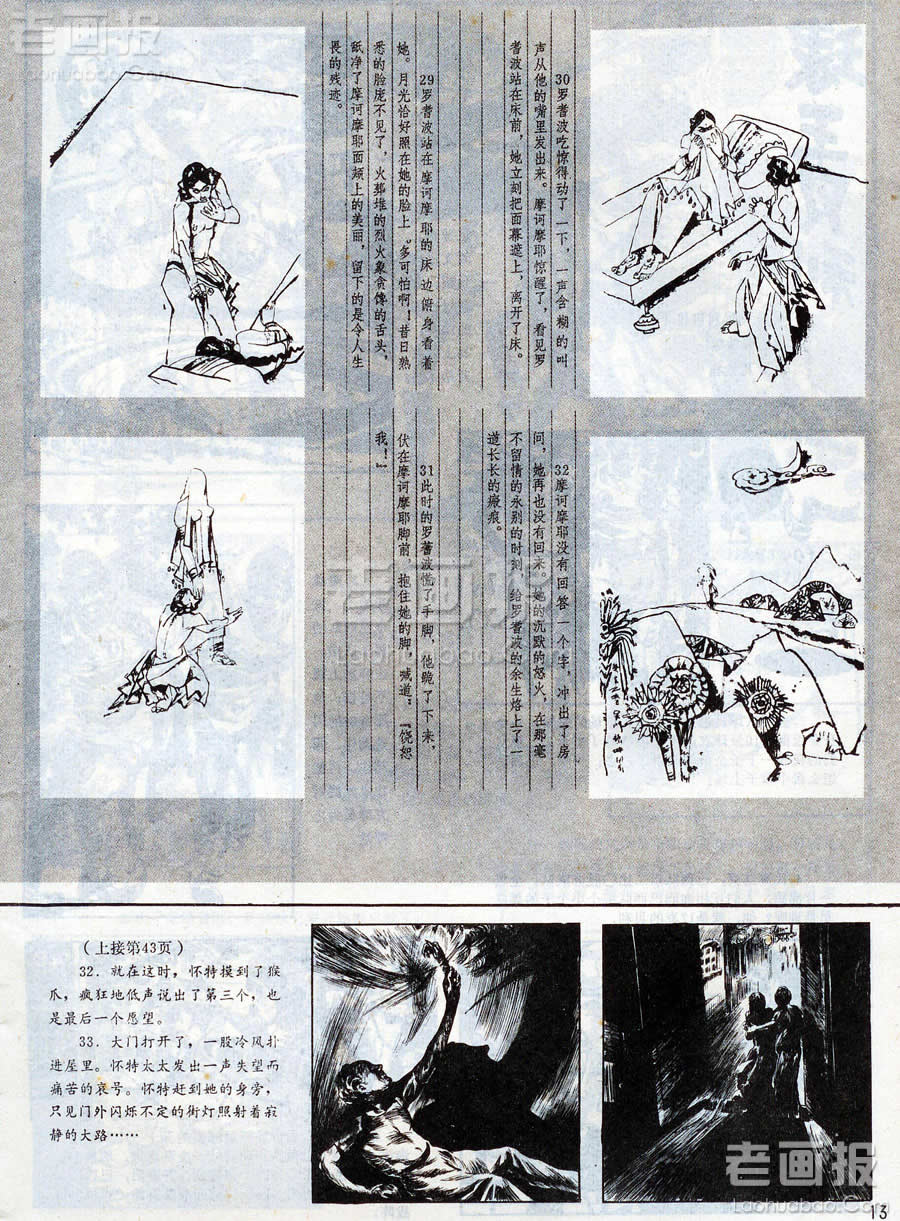 老画报
laohuabao.com
29罗耆波站在摩诃摩耶的床边俯身看着
她。月光恰好照在她的脸上。多可怕啊！昔日熟
悉的脸庞不见了，火葬堆的烈火象贪馋的舌头，
舐净了摩诃摩耶面颊上的美丽，留下的是令人生
畏的残迹。
30罗耆波吃惊得动了一下，一声含糊的叫
声从他的嘴里发出来。摩诃摩耶惊醒了，看见罗
耆波站在床前，她立刻把面幕遮上，离开了床。
31此时的罗耆波慌了手脚，他跪了下来，
伏在摩诃摩耶脚前，抱住她的脚，喊道：“饶恕
我！”
32摩诃摩耶没有回答一个字，冲出了房
间，她再也没有回来。她的沉默的怒火，在那毫
不留情的永别的时刻，给罗耆波的余生烙上了一
道长长的瘢痕。
老画报
laohuabao.com
（上接第43页）
32．就在这时，怀特摸到了猴
爪，疯狂地低声说出了第三个，也
是最后一个愿望。
33．大门打开了，一股冷风扑
进屋里。怀特太太发出一声失望而
痛苦的哀号。怀特赶到她的身旁，
只见门外闪烁不定的街灯照射着寂
静的大路……
老画报
Laohuabao.Com
13